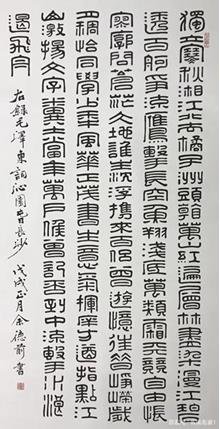 獨立寒秋湘江北去橘子洲頭看萬山紅遍層林盡染漫江碧
透百舸爭流鷹擊長空魚翔淺底萬類霜天競自由悵
寥廓問蒼茫大地誰主沉浮攜來百侶曾游憶往昔崢嶸歲
月稠恰同學少年風華正茂書生意氣揮斥方遒指點江
山激揚文字糞土當年萬戶侯曾記否到中流擊水浪
遏飛舟
右錄毛澤東詞沁園春長沙 戊戌正月余德前書